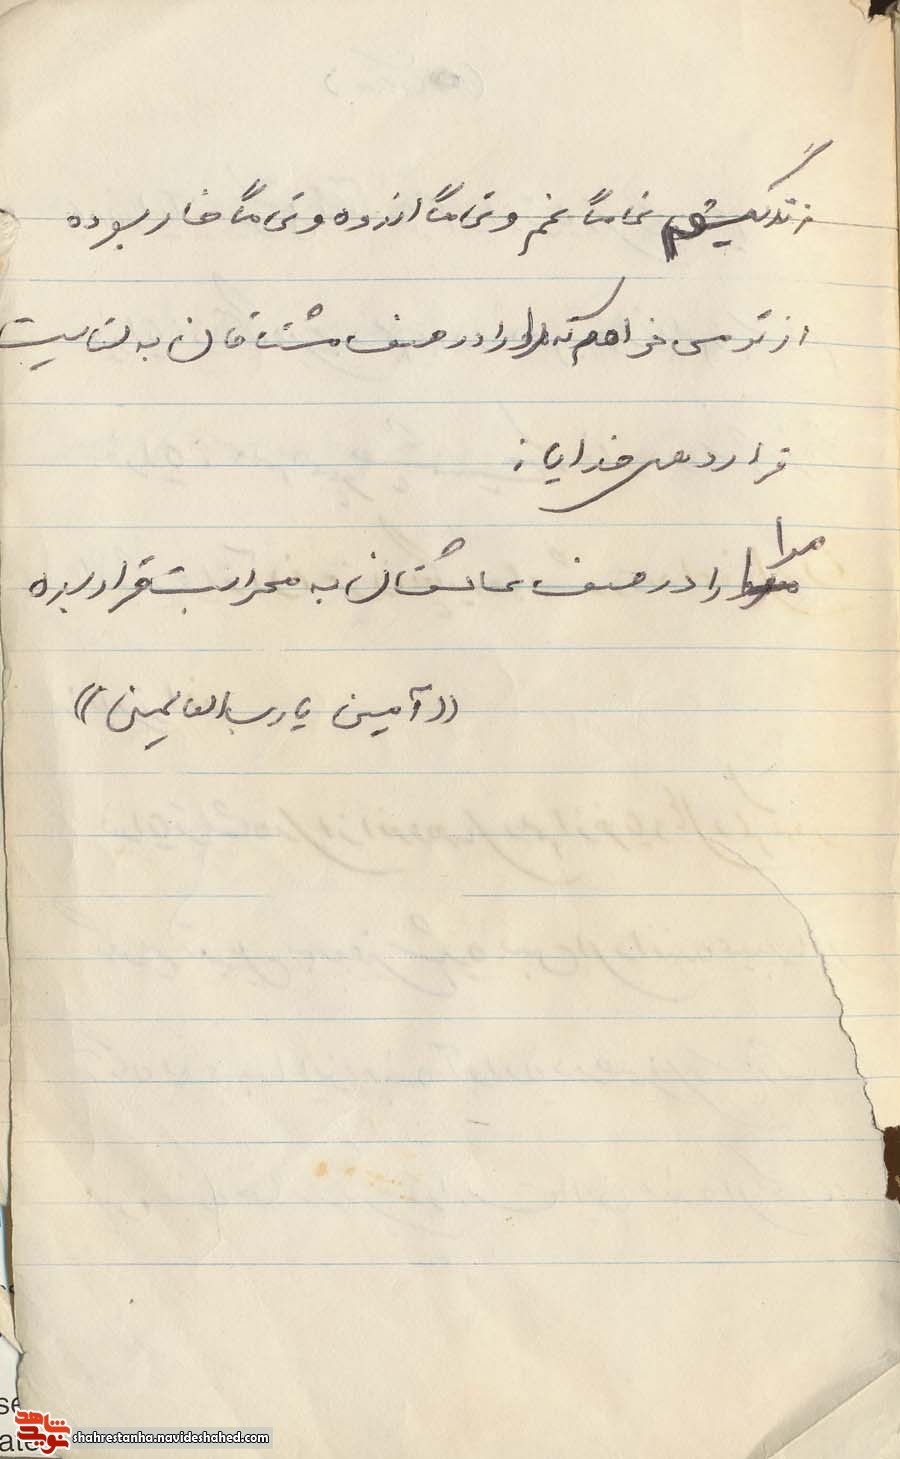 زندگیم تماماً غم و تماماً اندوه و تماماً خار بوده
از تو می خواهم که مرا در صف مشتاقان به لقایت
قرار دهی خدایا :
مرا
را در صف عاشقان به محرابت قرار بده
((آمین یا رب العالمین))
se
ate
شاهد
نوید
shahrestanha.navideshahed.com